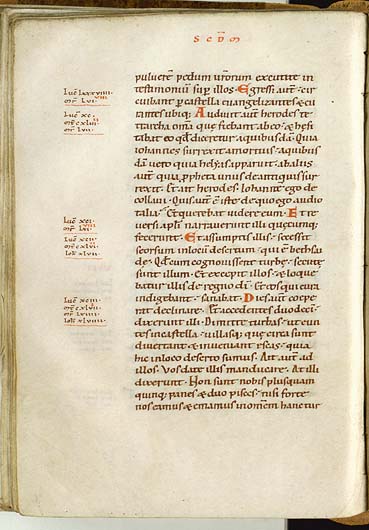 SCDM
puluerē pedum ur̄orum excutite in
testimoniū supͬ illos. Egressi autē. cir
cuibant p castella euangelizantes & cu
rantes ubiq;. Audiuit autē herodes te
tarcha om̄a que fiebant ab eo. & hesi
tabat eo qd diceretur. a quibusdā. Quia
iohannes surrexit a mortuis. a quibus
dā uero quia helyas apparuit. ab aliis
autē. quia ppheta unus de antiquis sur
rexit. Et ait herodes. Iohannē ego de
collaui. Quis autē ē iste. de quo ego audio
talia. Et querebat uidere eum. Et re
uersi apli narrauerunt illi quecunq;
fecerunt. Et assumptis illis. secessit
seorsum in locū desertum. qui ē bethsai
de. Qd cum cognouissent turbe. secute
sunt illum. Et excepit illos. & loque
batur illis de regno dī. Et eos qui cura
indigebant. sanabat. Dies autē cepe
rat declinare. Et accedentes duodeci.
dixerunt illi. Dimitte turbas. ut eun
tes in castella. uillasq; que circa sunt
diuertant. & inueniant escas. quia
hic in loco deserto sumus. Ait autē ad
illos. Vos date illis manducare. At illi
dixerunt. Non sunt nobis plus quam
quinq; panes & duo pisces. nisi forte
nos eamus & emamus in omnem hanc tur